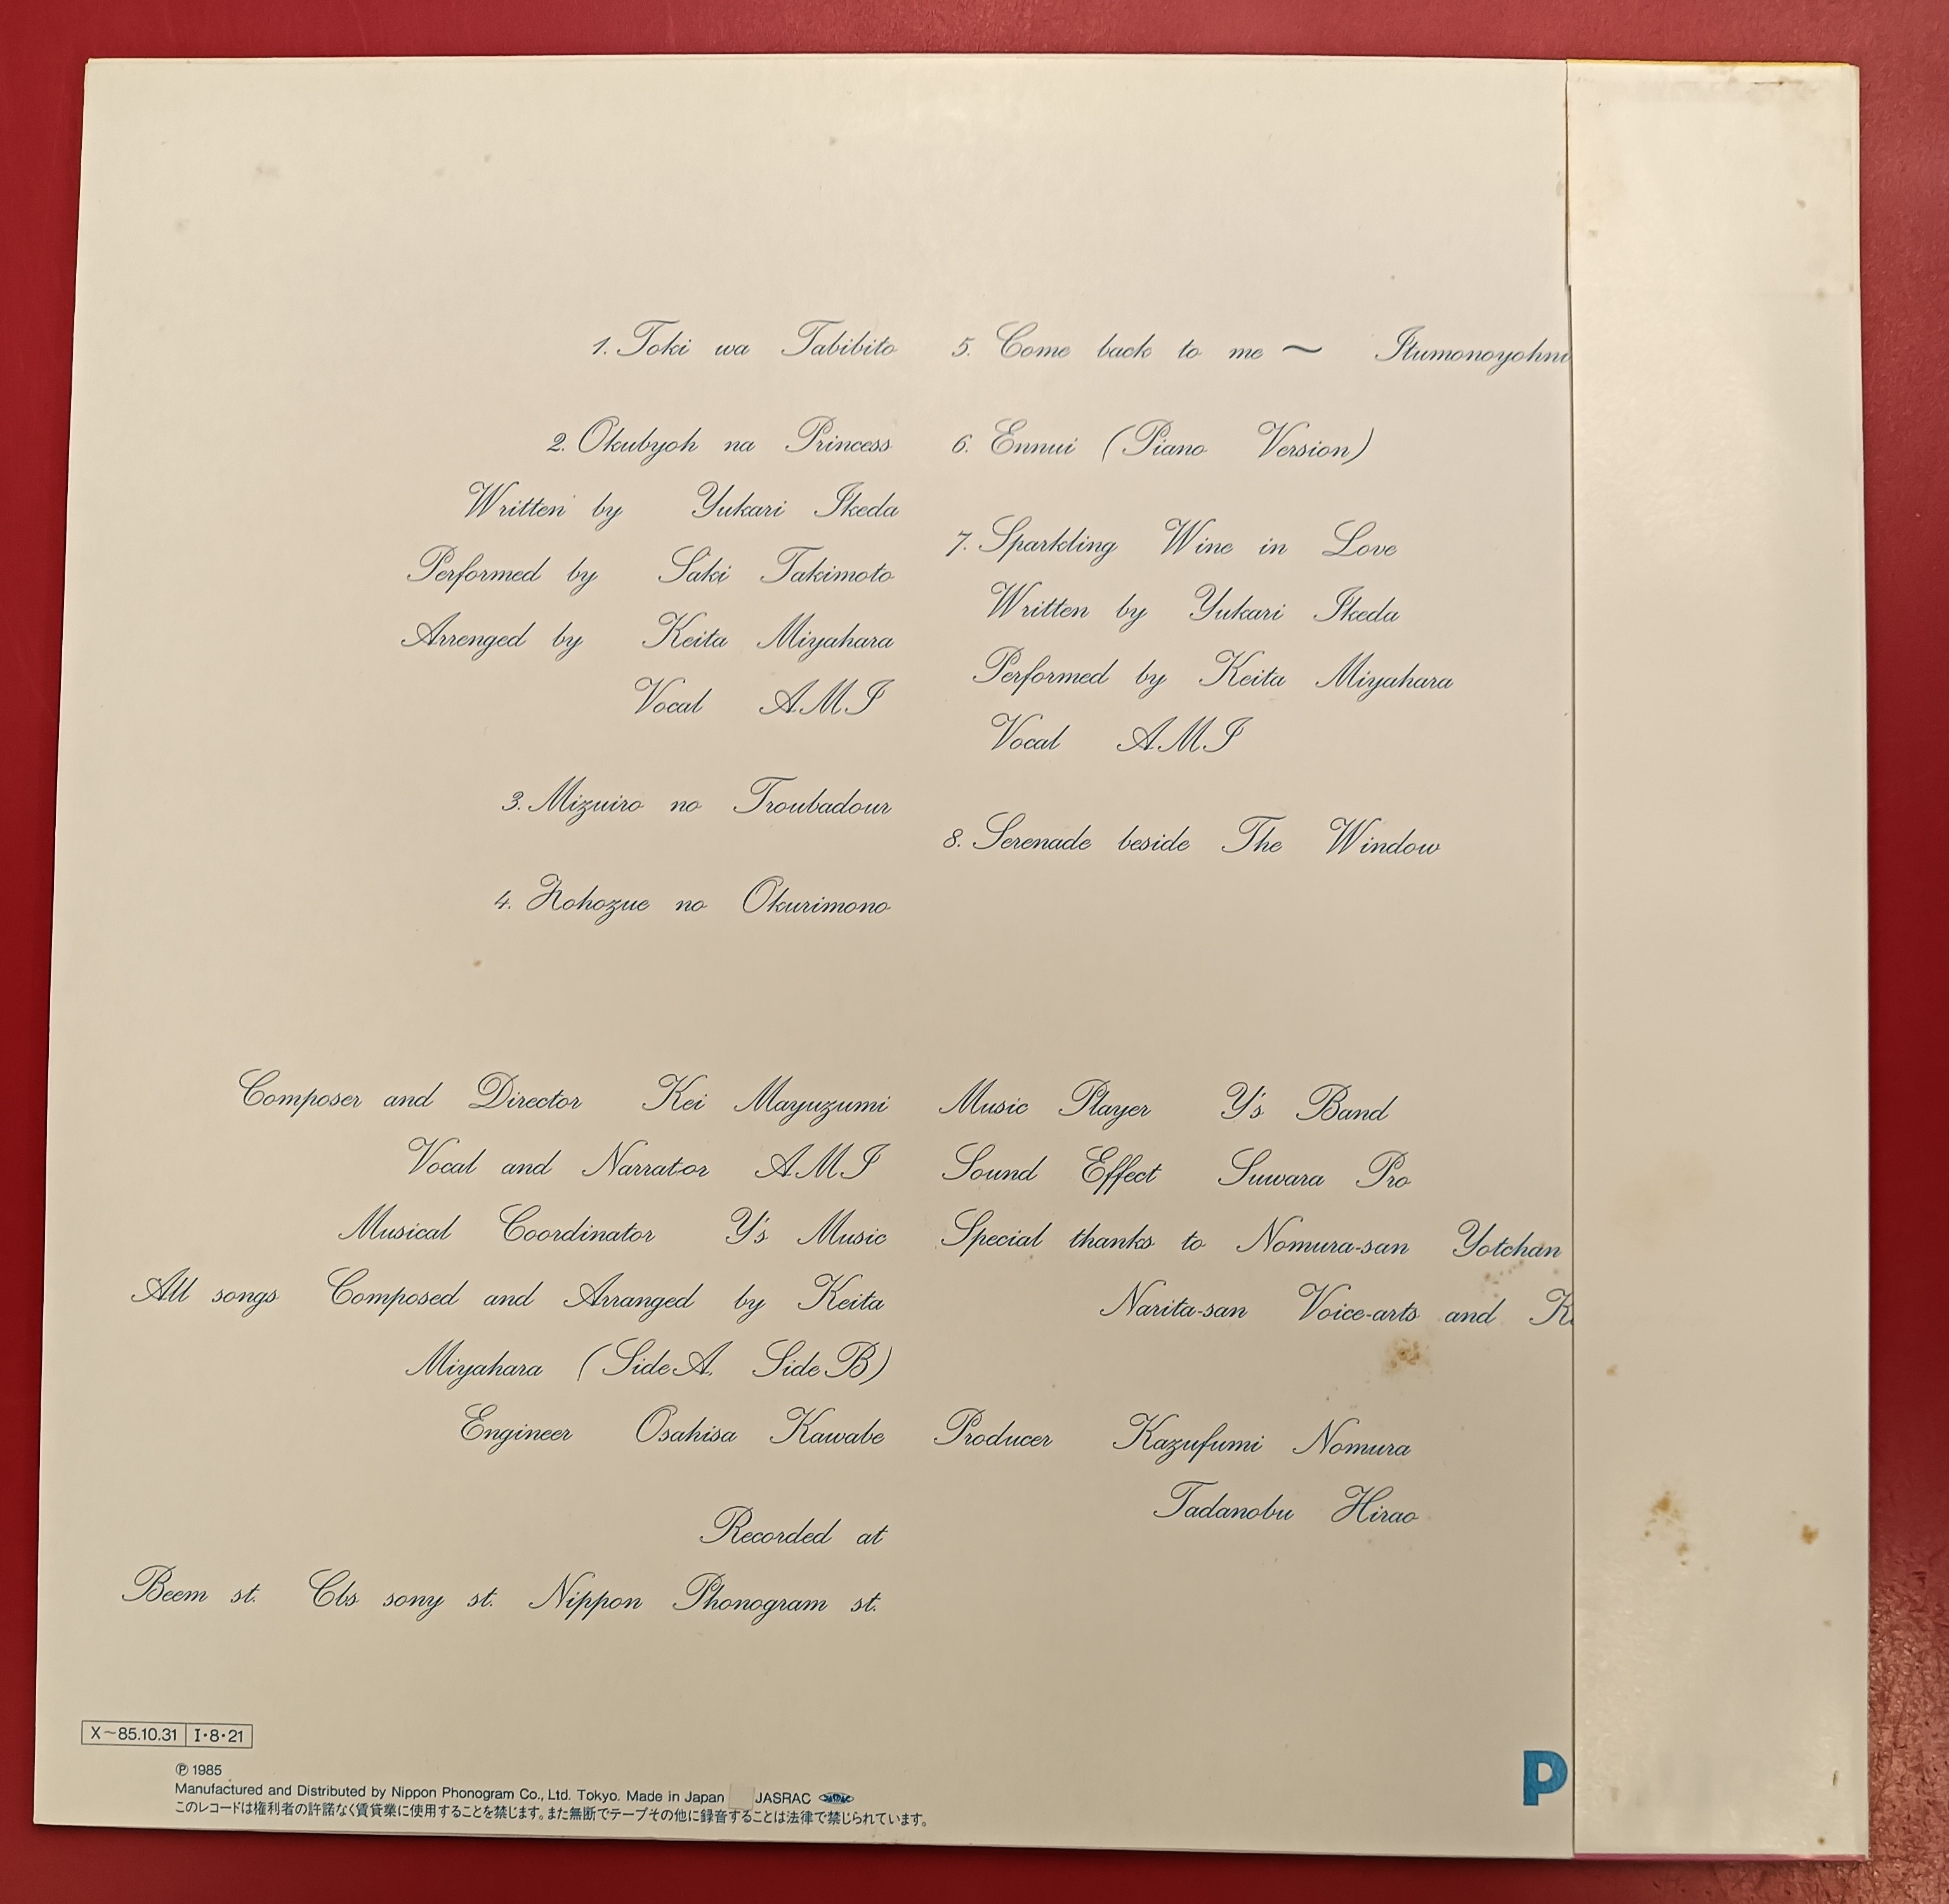 1. Toki wa Tabibito
2. Okubyoh na Princess
Written by Yukari Ikeda
Performed by Saki Takimoto
Arrenged by Keita Miyahara
Vocal AMI
3. Mizuiro no Troubadour
4. Hohozue no Okurimono
5. Come back to me ~ Itumonoyohni
6. Ennui (Piano Version)
7. Sparkling Wine in Love
Written by Yukari Ikeda
Performed by Keita Miyahara
Vocal AMI
8. Serenade beside The Window
Composer and Director Kei Mayuzumi
Vocal and Narrator AMI
Musical Coordinator Y's Music
All songs Composed and Arranged by Keita
Miyahara (Side A, Side B)
Engineer Osahisa Kawabe
Recorded at
Beem st. Cbs sony st. Nippon Phonogram st.
Music Player Y's Band
Sound Effect Suwara Pro
Special thanks to Nomura-san Yotchan
Narita-san Voice-arts and
Producer Kazufumi Nomura
Tadanobu Hirao
X~85.10.31 I·8·21
℗ 1985
Manufactured and Distributed by Nippon Phonogram Co., Ltd. Tokyo. Made in Japan JASRAC
このレコードは権利者の許諾なく賃貸業に使用することを禁じます。また無断でテープその他に録音することは法律で禁じられています。
P